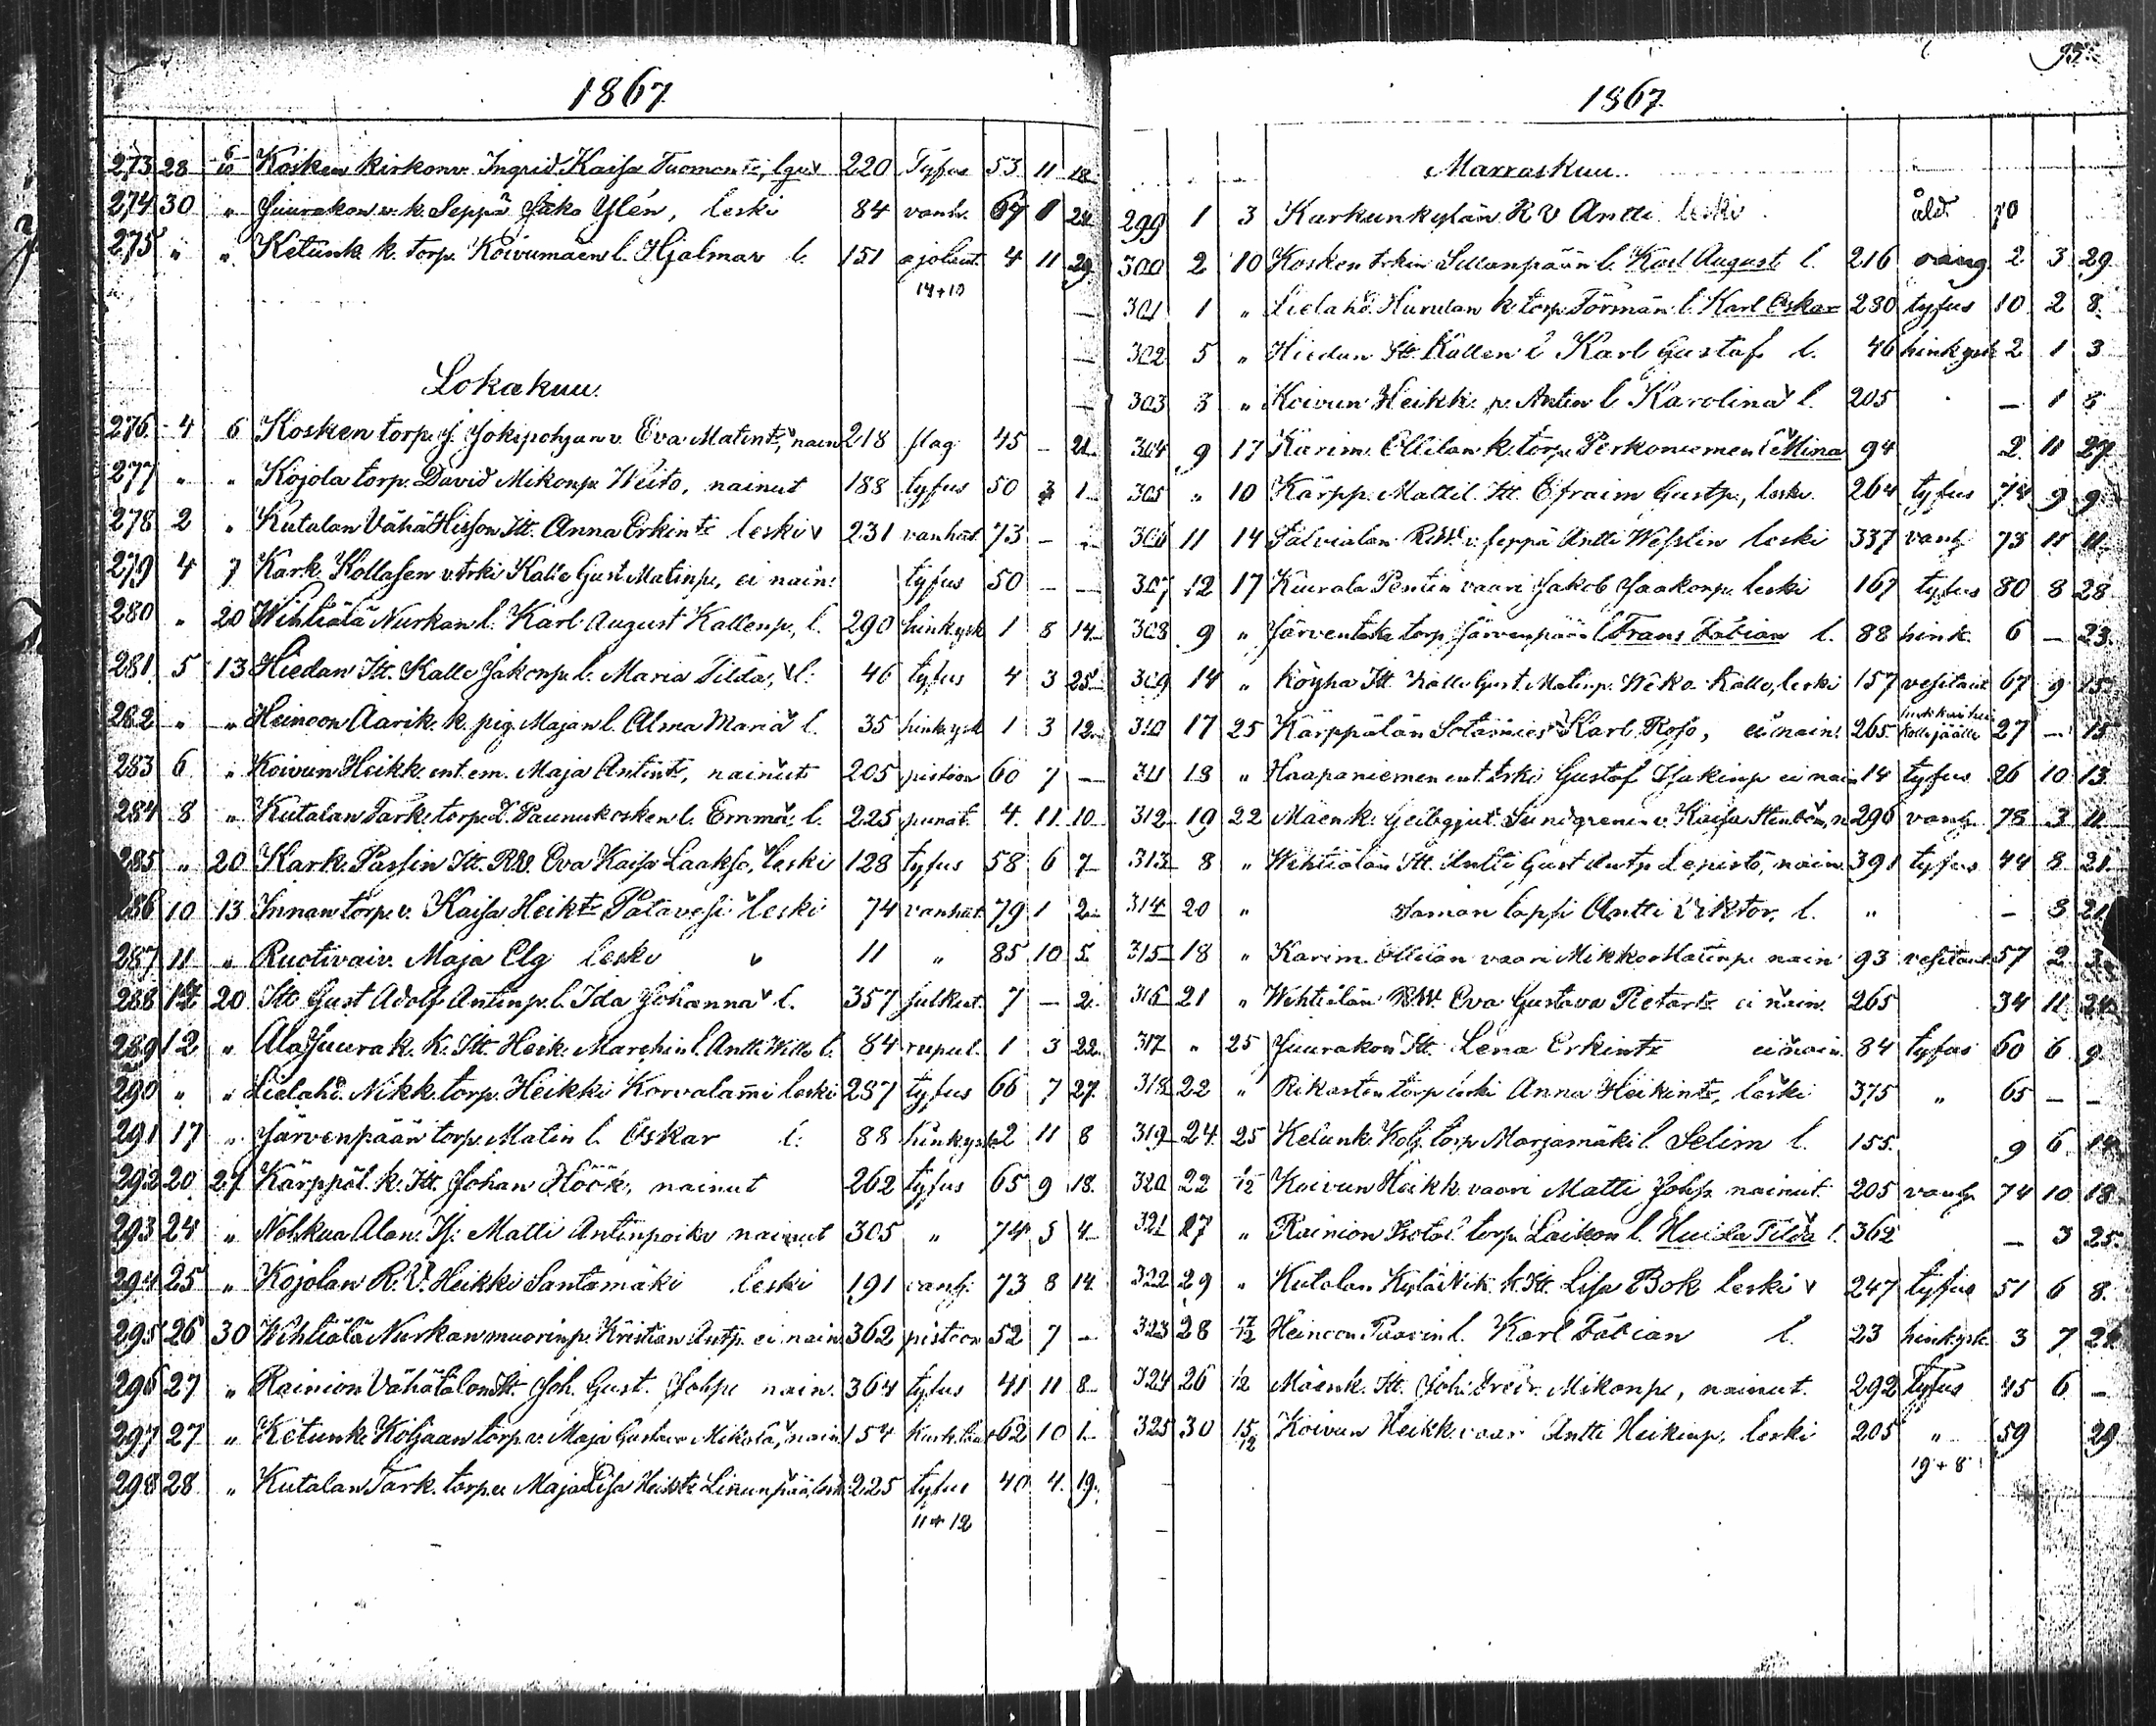 1867
273 28 6/10 Kosken kirkonv. Ingrid Kaisa Tuomant:, 220 Tyfus 53 11 18
274 30 " Juurakon v. k. Seppä Jako Ylén, leski 84 vanh. 67 1 24
275 " " Ketunk. k. torp. Koivumäen l. Hjalmar l. 151 ajoluut. 4 11 29
14+10
Lokakuu.
276 4 6 Kosken torp. J. Jokipohjan v. Eva Matint:, nain 218 slag 45 - 21
277 " " Kojola torp. David Mikonp. Weito, nainut 188 tyfus 50 3 1
278 2 " Kutalan Vähä Hisson Itt. Anna Erkint: leski v 231 vanhat. 73 - -
279 4 7 Kark. Kollasen v. trki Kalle Gust Matinp., ei nain: tyfus 50 - -
280 " 20 Wihtiälä Nurkan l. Karl August Kallenp., l. 290 hinkysk 1 8 14
281 5 13 Hiedan Itt. Kalle Jakonp. l. Maria Tilda, v l. 46 tyfus 4 3 25
282 " " Heinoon Aarik. k. pig. Majan l. Alma Maria v l. 35 hinkysk 1 3 12
283 6 " Koivun Heikk. ent. em. Maja Antint:, nainut 205 pistoon 60 7 -
284 8 " Kutalan Tark. torp. D. Paunukosken l. Emma: l. 225 punat. 4 11 10
285 " 20 Kark. Passin Itt. RW. Eva Kaisa Laakso, leski 128 tyfus 58 6 7
286 10 13 Innan torp. v. Kaisa Heikt: Patavesi leski 74 vanhat. 79 1 2
287 11 " Ruotivaiv. Maja Elg leski v 11 " 85 10 5
288 20 Itt Gust Adolf Antinp. l. Ida Johanna v l. 357 julkut. 7 - 2
289 12 " Ala Juurak. k. Itt. Heik. l. Antti Wille l. 84 rupul. 1 3 22
290 " " Lielahd. Nikk. torp. Heikki Korvalammi leski 237 tyfus 66 7 27
291 17 " Järvenpään torp. Matin l. Oskar l. 88 hinkysk 2 11 8
292 20 27 Kärppäl. k. Itt. Johan Höök, nainut 262 tyfus 65 9 18
293 24 " Nohkua Alan. Ij: Matti Antinpoika nainut 305 " 74 5 4
294 25 " Kojolan R. V. Heikki Santamäki leski 191 vanh: 73 8 14
295 26 30 Wihtiälä Nurkan muorinp. Kristian Antp. ei nain 362 pistoon 52 7 -
296 27 " Rainion Vähätalon Itt. Joh. Gust. Johp. nain. 364 tyfus 41 11 8
297 27 " Ketunk. Koljaan torp. v. Maja Gustava Mikola, nain 154 62 10 1
298 28 " Kutalan Tark. torp. Maja Lisa Heikt: Linunpää, leski 225 tyfus 40 4 19
11+12
95
1867
Marraskuu.
299 1 3 Karkunkylän R V Antti leski åld 70
300 2 10 Kosken trkin Sillanpään l. Karl August l. 216 2 3 29
301 1 " Lielahd. Hurulan k. torp. Förmän l. Karl Oskar 230 tyfus 10 2 8
302 5 " Hiedan Itt. Kallen l. Karl Gustaf l. 46 hinkysk 2 1 3
303 3 " Koivun Heikk. p. Antin l. Karolina v l. 205 - 1 8
304 9 17 Karim. Ollilan k. torp. Perkoniemen l. Mina 94 2 11 27
305 " 10 Kärpp. Mattil. Itt. Efraim Gustp., leski. 264 tyfus 74 9 9
306 11 14 Talvialan RW. v. seppä Antti Wesslin leski 337 vanh 73 11 11
307 12 17 Kuurala Pentin vaari Jakob Jaakonp. leski 167 tyfus 80 8 28
308 9 " Järventaka torp. Järvenpään l. Frans Fabian l. 88 hink. 6 - 23
309 14 " Köyhä Itt. Kalle Gust. Matinp. Weko Kalle, leski 157 vesitaut 67 9 15
310 17 25 Kärppälän Sotamies Karl Roso, ei nain: 265 27 - 15
311 18 " Haapaniemen ent. trki Gustaf Isakinp. ei nain 14 tyfus 26 10 13
312 19 22 Mäenk. Gelbgjut. Sundgrenin v. Kaisa Stenbom, n 296 vanh 78 3 11
313 8 " Wihtiälän Itt. Antti Gust Antp. Lepistö, nain 391 tyfus 44 8 21
314 20 " Saman lapsi Antti Viktor, l. " - 3 21
315 18 " Karim. Ollilan vaari Mikko Matinp. nain 93 vesitaut 57 2 3
316 21 " Wihtiälän RW. Eva Gustava Pietart: ei nain. 265 34 11 24
317 " 25 Juurakon Itt. Lena Erkint: ei nain. 84 tyfus 60 6 9
318 22 " Rikasten torp. leski Anna Heikint:, leski 375 " 65 - -
319 24 25 Ketunk. Kolj. torp. Marjamäki l. Selim l. 155. 9 6 14
320 22 1/12 Koivun Heikk. vaari Matti Johp. nainut. 205 vanh 74 10 18
321 27 " Rainion torp. l. Hulda Tilda l. 362 - 3 25
322 29 " Kutalan Kylä Nik. k. Itt. Lisa Bok leski v 247 tyfus 51 6 8
323 28 17/12 Heinoon Paavin l. Karl Fabian l. 23 hinkysk. 3 7 21
324 26 1/12 Mäenk. Itt. Joh. Fredr. Mikonp., nainut. 292 Tyfus 45 6 -
325 30 15/12 Koivun Heikk. vaari Antti Heikinp. leski 205 " 59 29
19+8